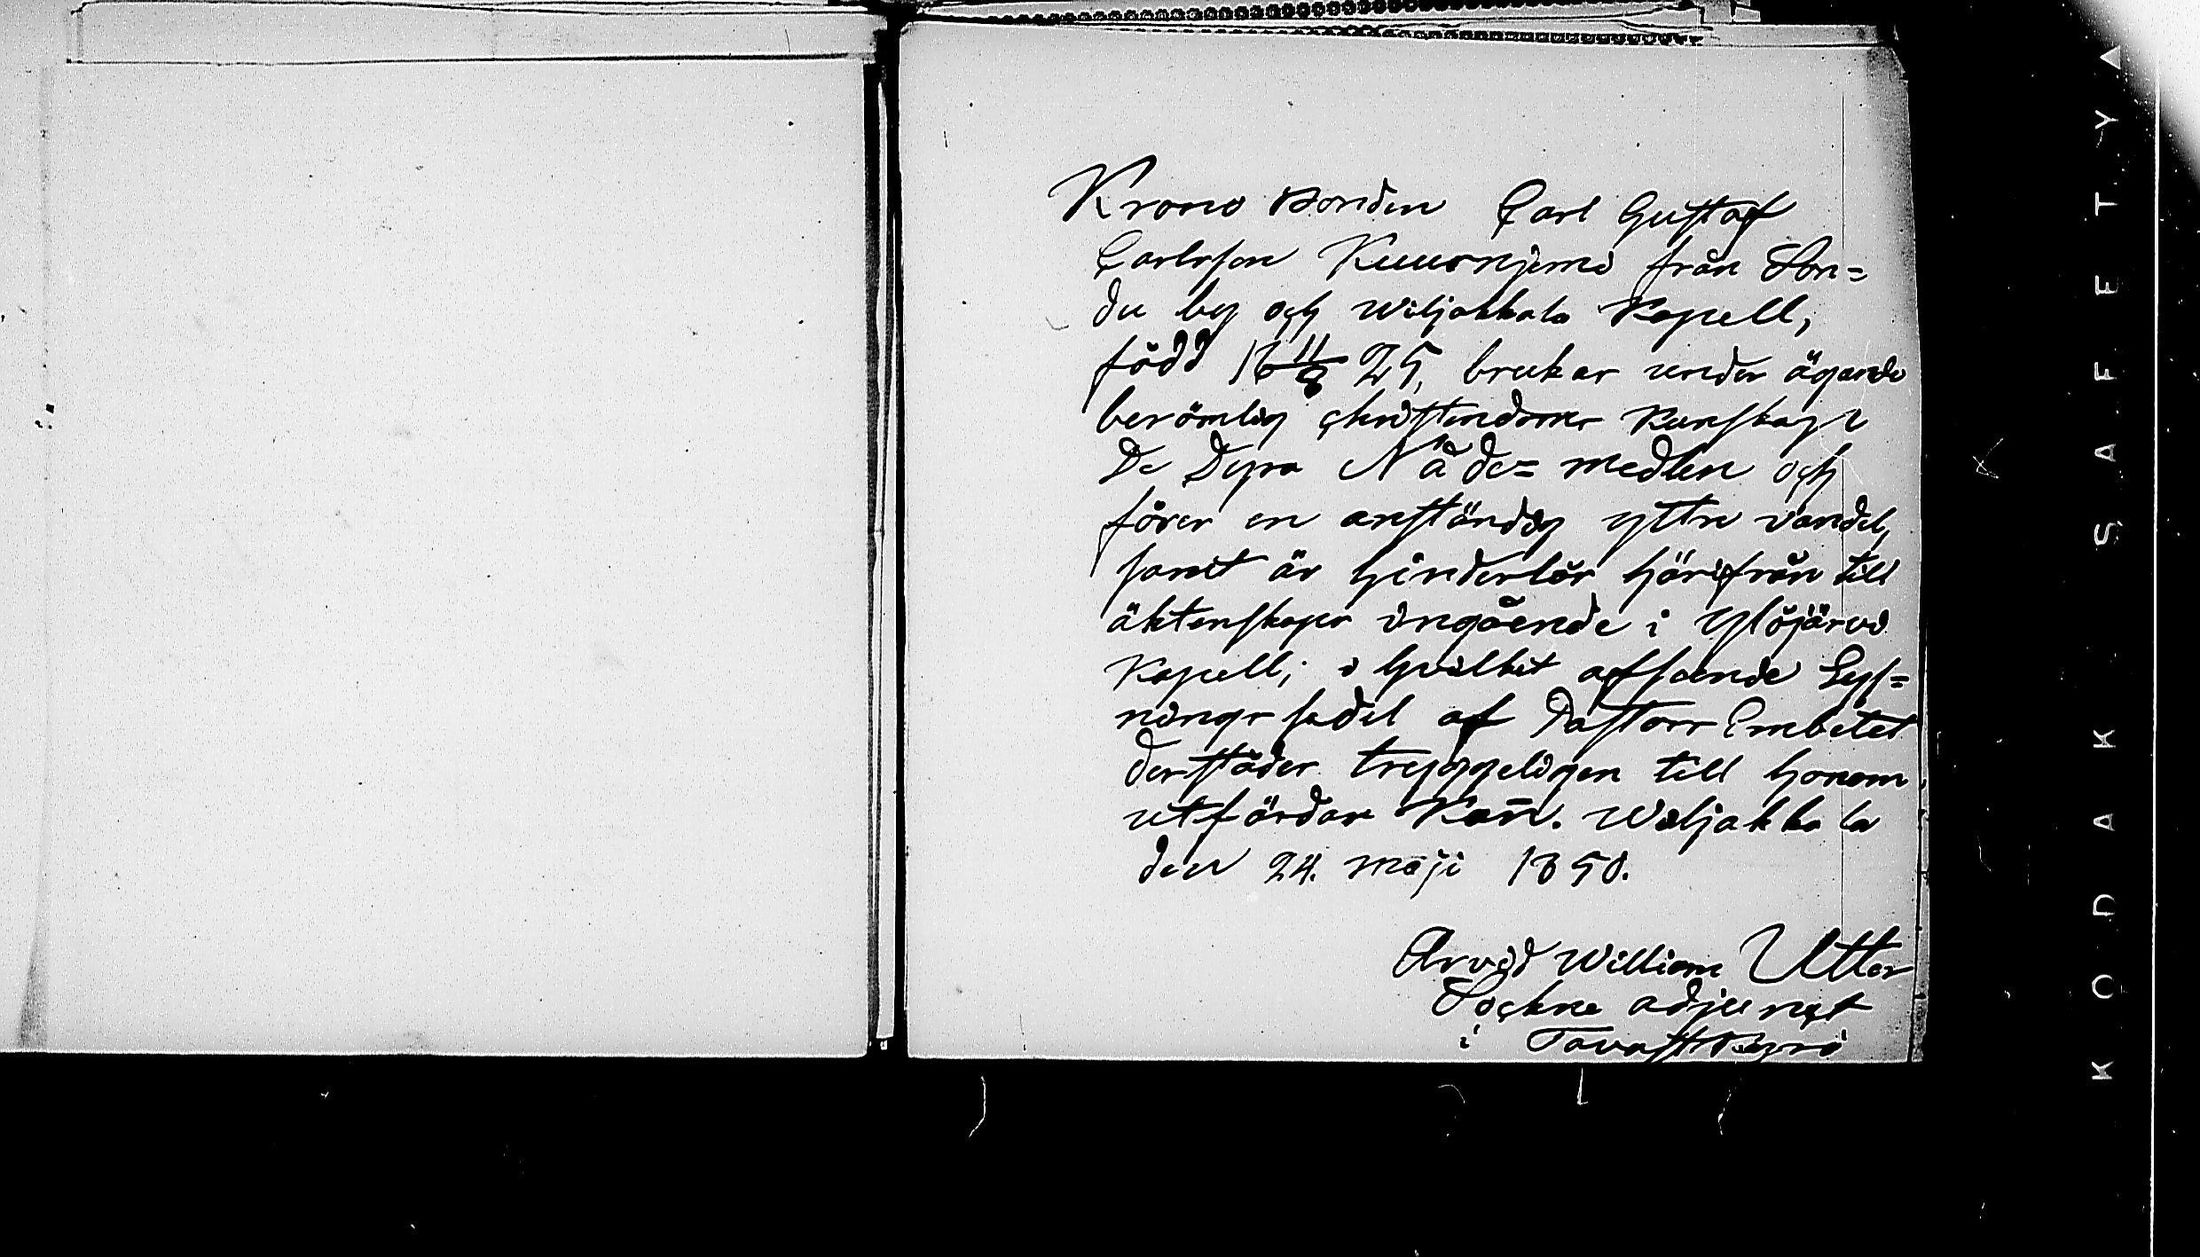 Krono Bonden Carl Gustaf
Carlsson Kuusnjemi från Son=
du by och Wiljakkala Kapell,
född 18 11/8 25, brukar under ägande
berömlig christendoms kunskap
De Dyra Nåde= medlen och
förer en anständig yttre vandel,
samt är hinderlös härifrån till
äktenskaps ingående i Ylöjärvi
Kapell; i hvilket afseende Lys=
nings sedel af Pastors Embetet
derstädes tryggeligen till honom
utfärdas kan̄. Wiljakkala
den 24. Maji 1850.
Arvid William Utter
Sockne adjunct
i Tavastkyrö
KODAK SAFETY A